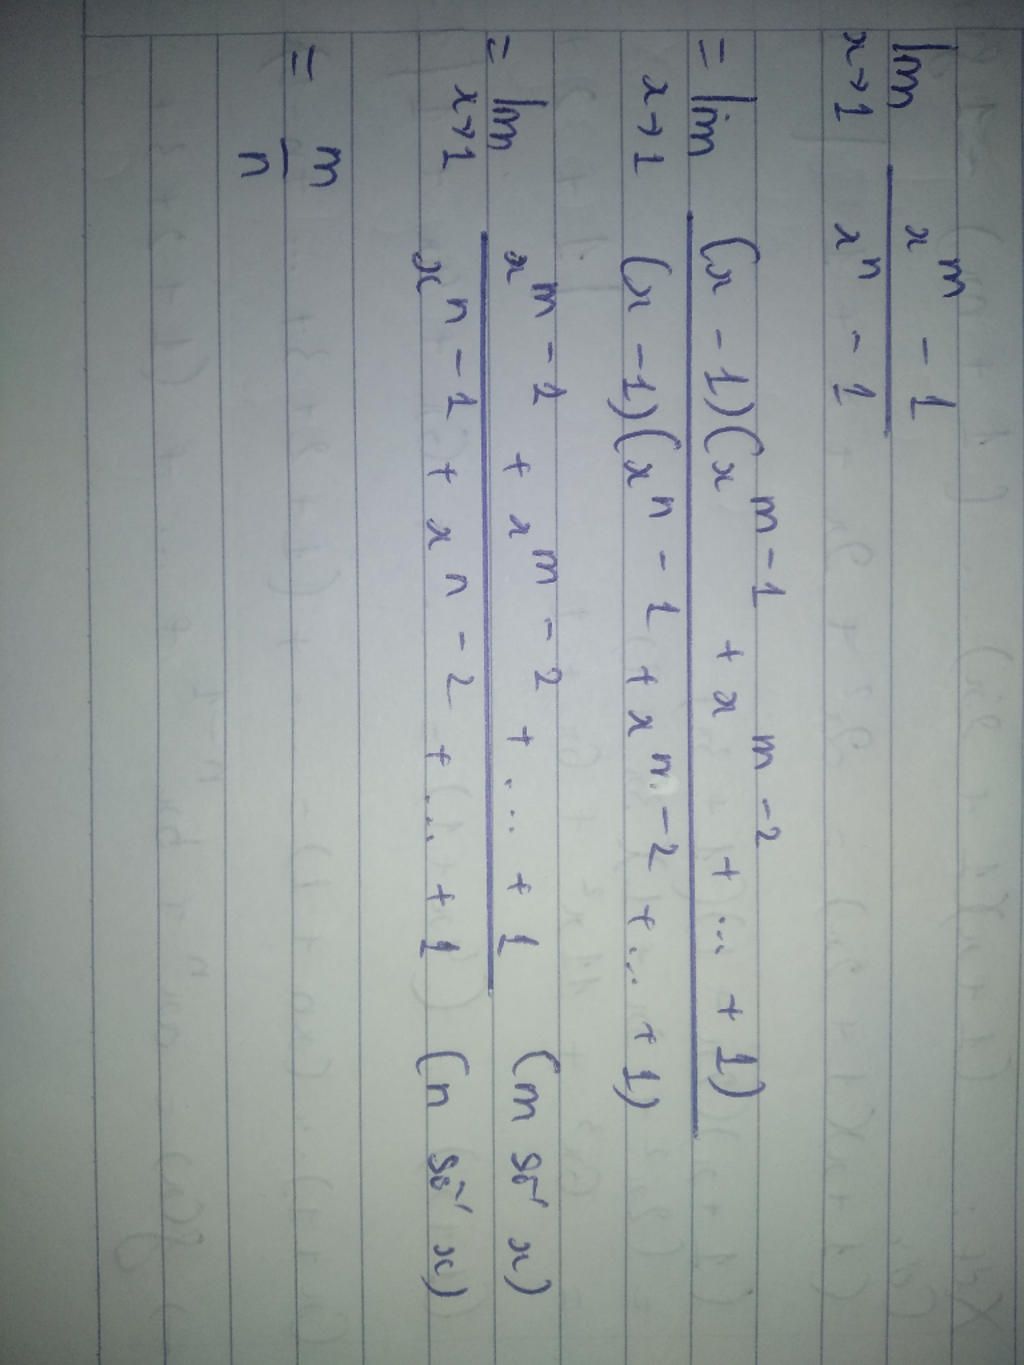 lim x→1 (x^m - 1)/(x^n - 1)
= lim x→1 ((x - 1)(x^{m-1} + x^{m-2} + ... + 1))/((x - 1)(x^{n-1} + x^{n-2} + ... + 1))
= lim x→1 (x^{m-1} + x^{m-2} + ... + 1)/(x^{n-1} + x^{n-2} + ... + 1) (m số x) (n số x)
= m/n